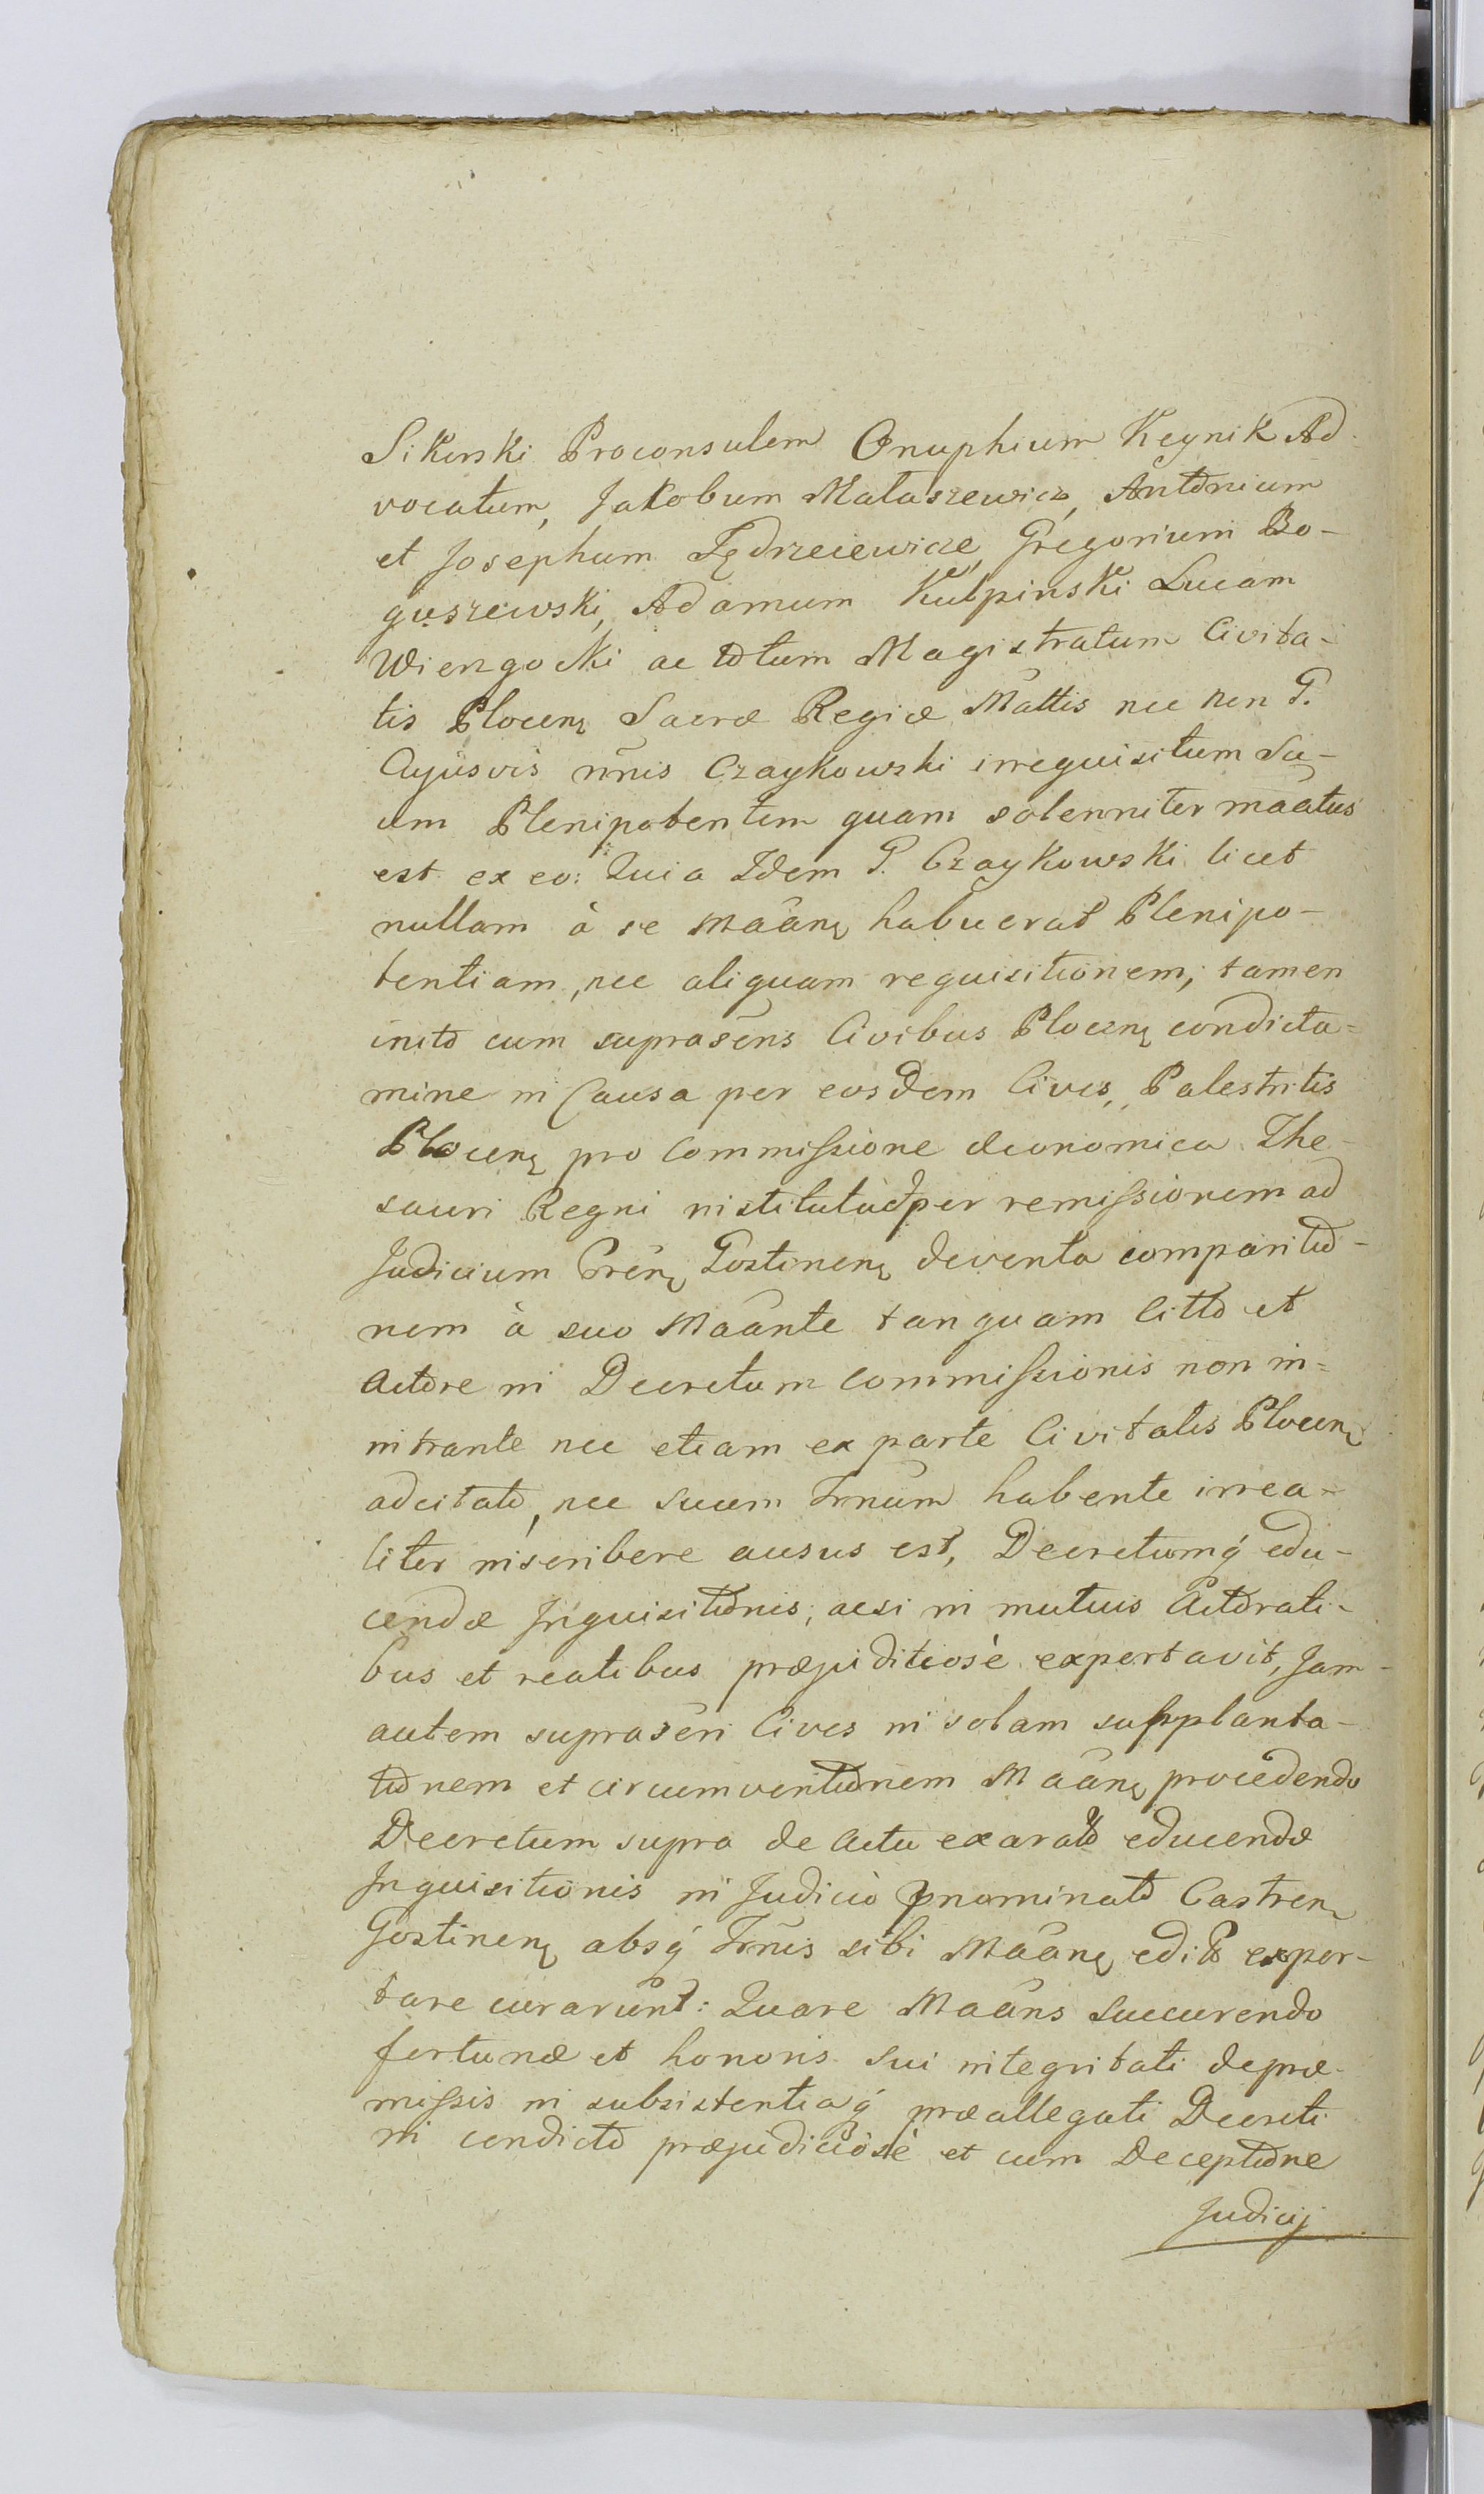 Sikorski Proconsulem Onuphium Kegnik Ad-
vocatum, Jakobum Mataszewicz, Antonium
et Josephum Jędrzeiewicze, Gregorium Bo-
guszewski, Adamum Kulpinski Lucam
Wiengocki ac totum Magistratum Civita-
tis Plocenę Sacræ Regiæ Mattis nec non G.
Cujusvis nn̄is Czaykowski irrequisitum Su-
um Plenipotentem quam solenniter maātus
est ex eo: Quia Idem G. Czaykowski licet
nullam à se Maānę habuerat Plenipo-
tentiam, nec aliquam requisitionem, tamen
inito cum suprasēns Civibus Plocenę condicta-
mine in Causa per eosdem Cives, Palestritis
Plocenę pro Commissione œconomica The-
sauri Regni institutâ et per remissionem ad
Judicium Crēnę Gostinenę deventa comparitio-
nem à suo Maānte tanquam Citto et
Actore in Decretum Commissionis non in-
intrante nec etiam ex parte Civitatis Plocenę
adcitato, nec Suum Trnum habente irrea-
liter inscribere ausus est, Decretumq́ edu-
cendæ Inquisitionis, acsi in mutuis Actorati-
bus et reatibus præjuditiosè exportavit, Jam
autem suprasēri Cives in solam supplanta-
tionem et circumventionem Maānę procedendo
Decretum supra de Actu exarato educendæ
Inquisitionis in Judicio pnominato Castren
Gostinenę absq́ Trnis sibi Maānę edito expor-
tare curarunt: Quare Maāns Succurendo
fortunæ et honoris sui integritati de præ-
missis in subsistentiaq́ præallegati Decreti
in condicto præjudiciosè et cum Deceptione
Judicij